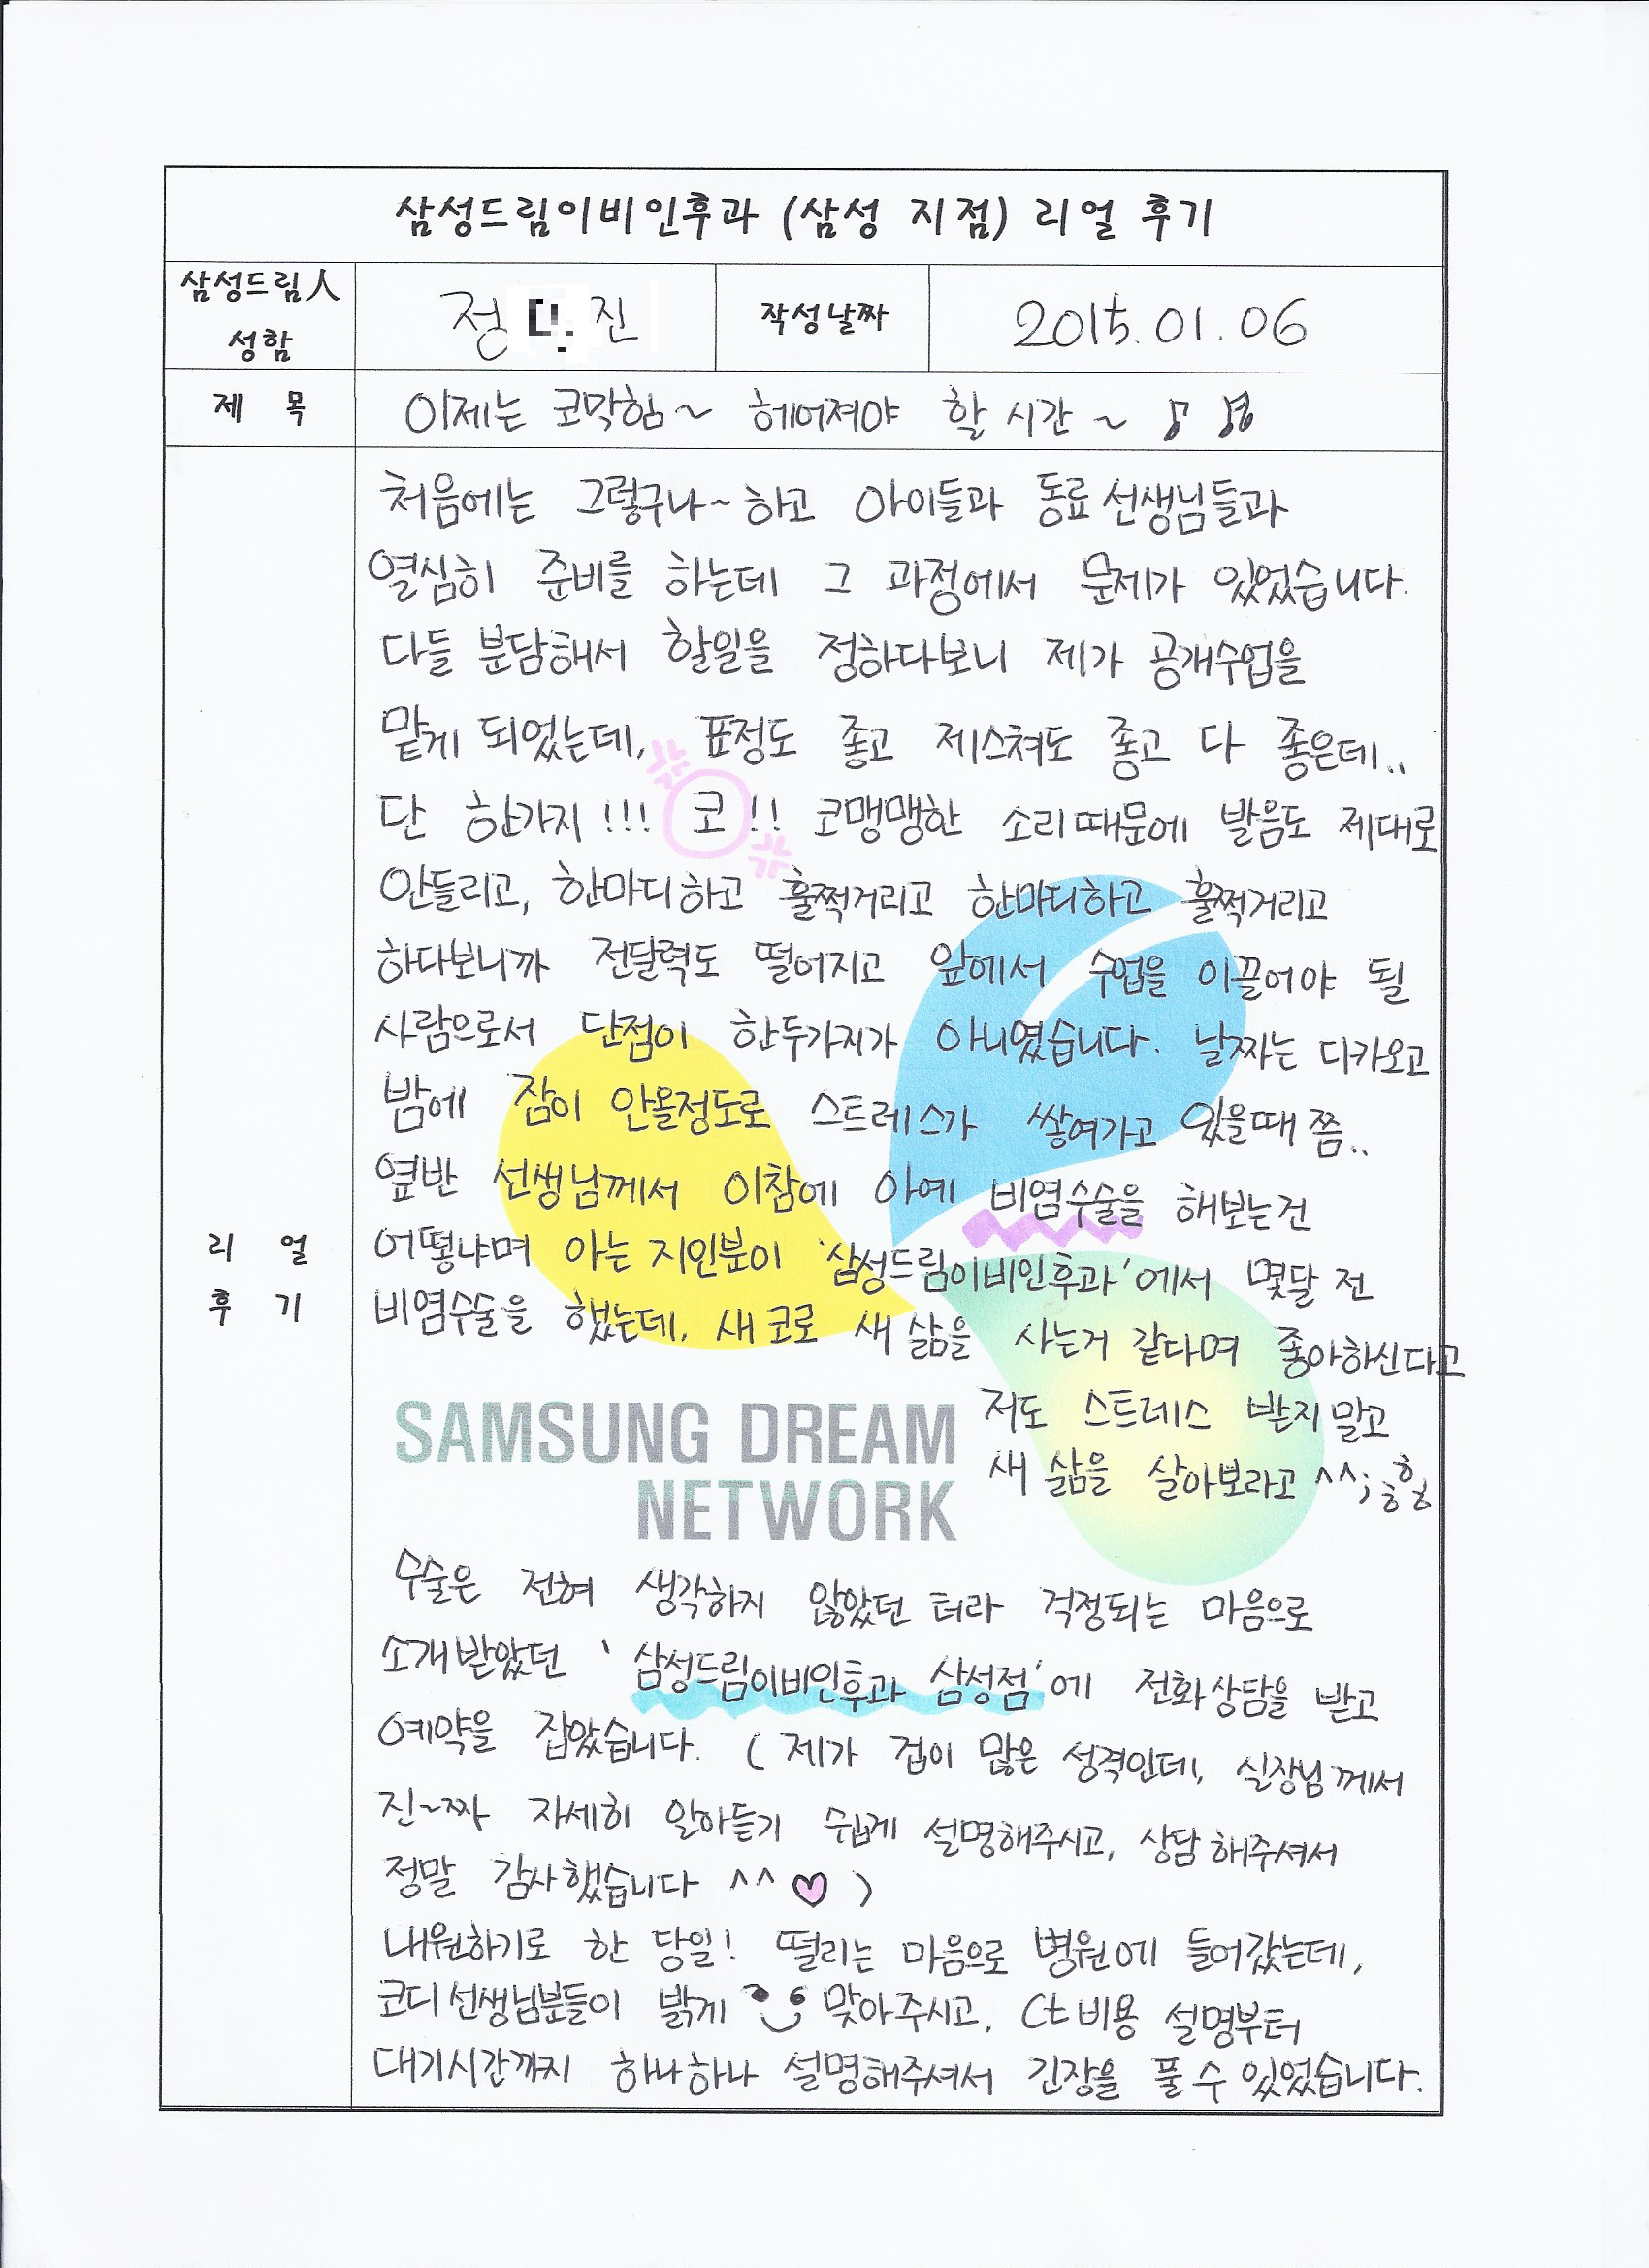 삼성드림이비인후과 (삼성 지점) 리얼 후기
삼성드림人
성함
정 진
작성날짜
2015.01.06
제 목
이제는 코막힘~ 헤어져야 할 시간~ ♪ ♫
처음에는 그렇구나~하고 아이들과 동료선생님들과
열심히 준비를 하는데 그 과정에서 문제가 있었습니다.
다들 분담해서 할일을 정하다보니 제가 공개수업을
맡게 되었는데, 표정도 좋고 제스쳐도 좋고 다 좋은데..
단 한가지!!! 코!! 코맹맹한 소리때문에 발음도 제대로
안들리고, 한마디하고 훌쩍거리고 한마디하고 훌쩍거리고
하다보니까 전달력도 떨어지고 앞에서 수업을 이끌어야 될
사람으로서 단점이 한두가지가 아니였습니다. 날짜는 다가오고
밤에 잠이 안올정도로 스트레스가 쌓여가고 있을때 쯤..
옆반 선생님께서 이참에 아예 비염수술을 해보는건
어떻냐며 아는 지인분이 '삼성드림이비인후과'에서 몇달 전
비염수술을 했는데, 새코로 새 삶을 사는거 같다며 좋아하신다고
저도 스트레스 받지말고
새 삶을 살아보라고 ^^; 흐흐헝
리 얼
후 기
SAMSUNG DREAM
NETWORK
수술은 전혀 생각하지 않았던 터라 걱정되는 마음으로
소개받았던 '삼성드림이비인후과 삼성점'에 전화상담을 받고
예약을 잡았습니다. (제가 겁이 많은 성격인데, 실장님께서
진~짜 자세히 알아듣기 쉽게 설명해주시고, 상담해주셔서
정말 감사했습니다 ^^ ♡)
내원하기로 한 당일! 떨리는 마음으로 병원에 들어갔는데,
코디선생님분들이 밝게 맞아주시고, Ct비용 설명부터
대기시간까지 하나하나 설명해주셔서 긴장을 풀 수 있었습니다.